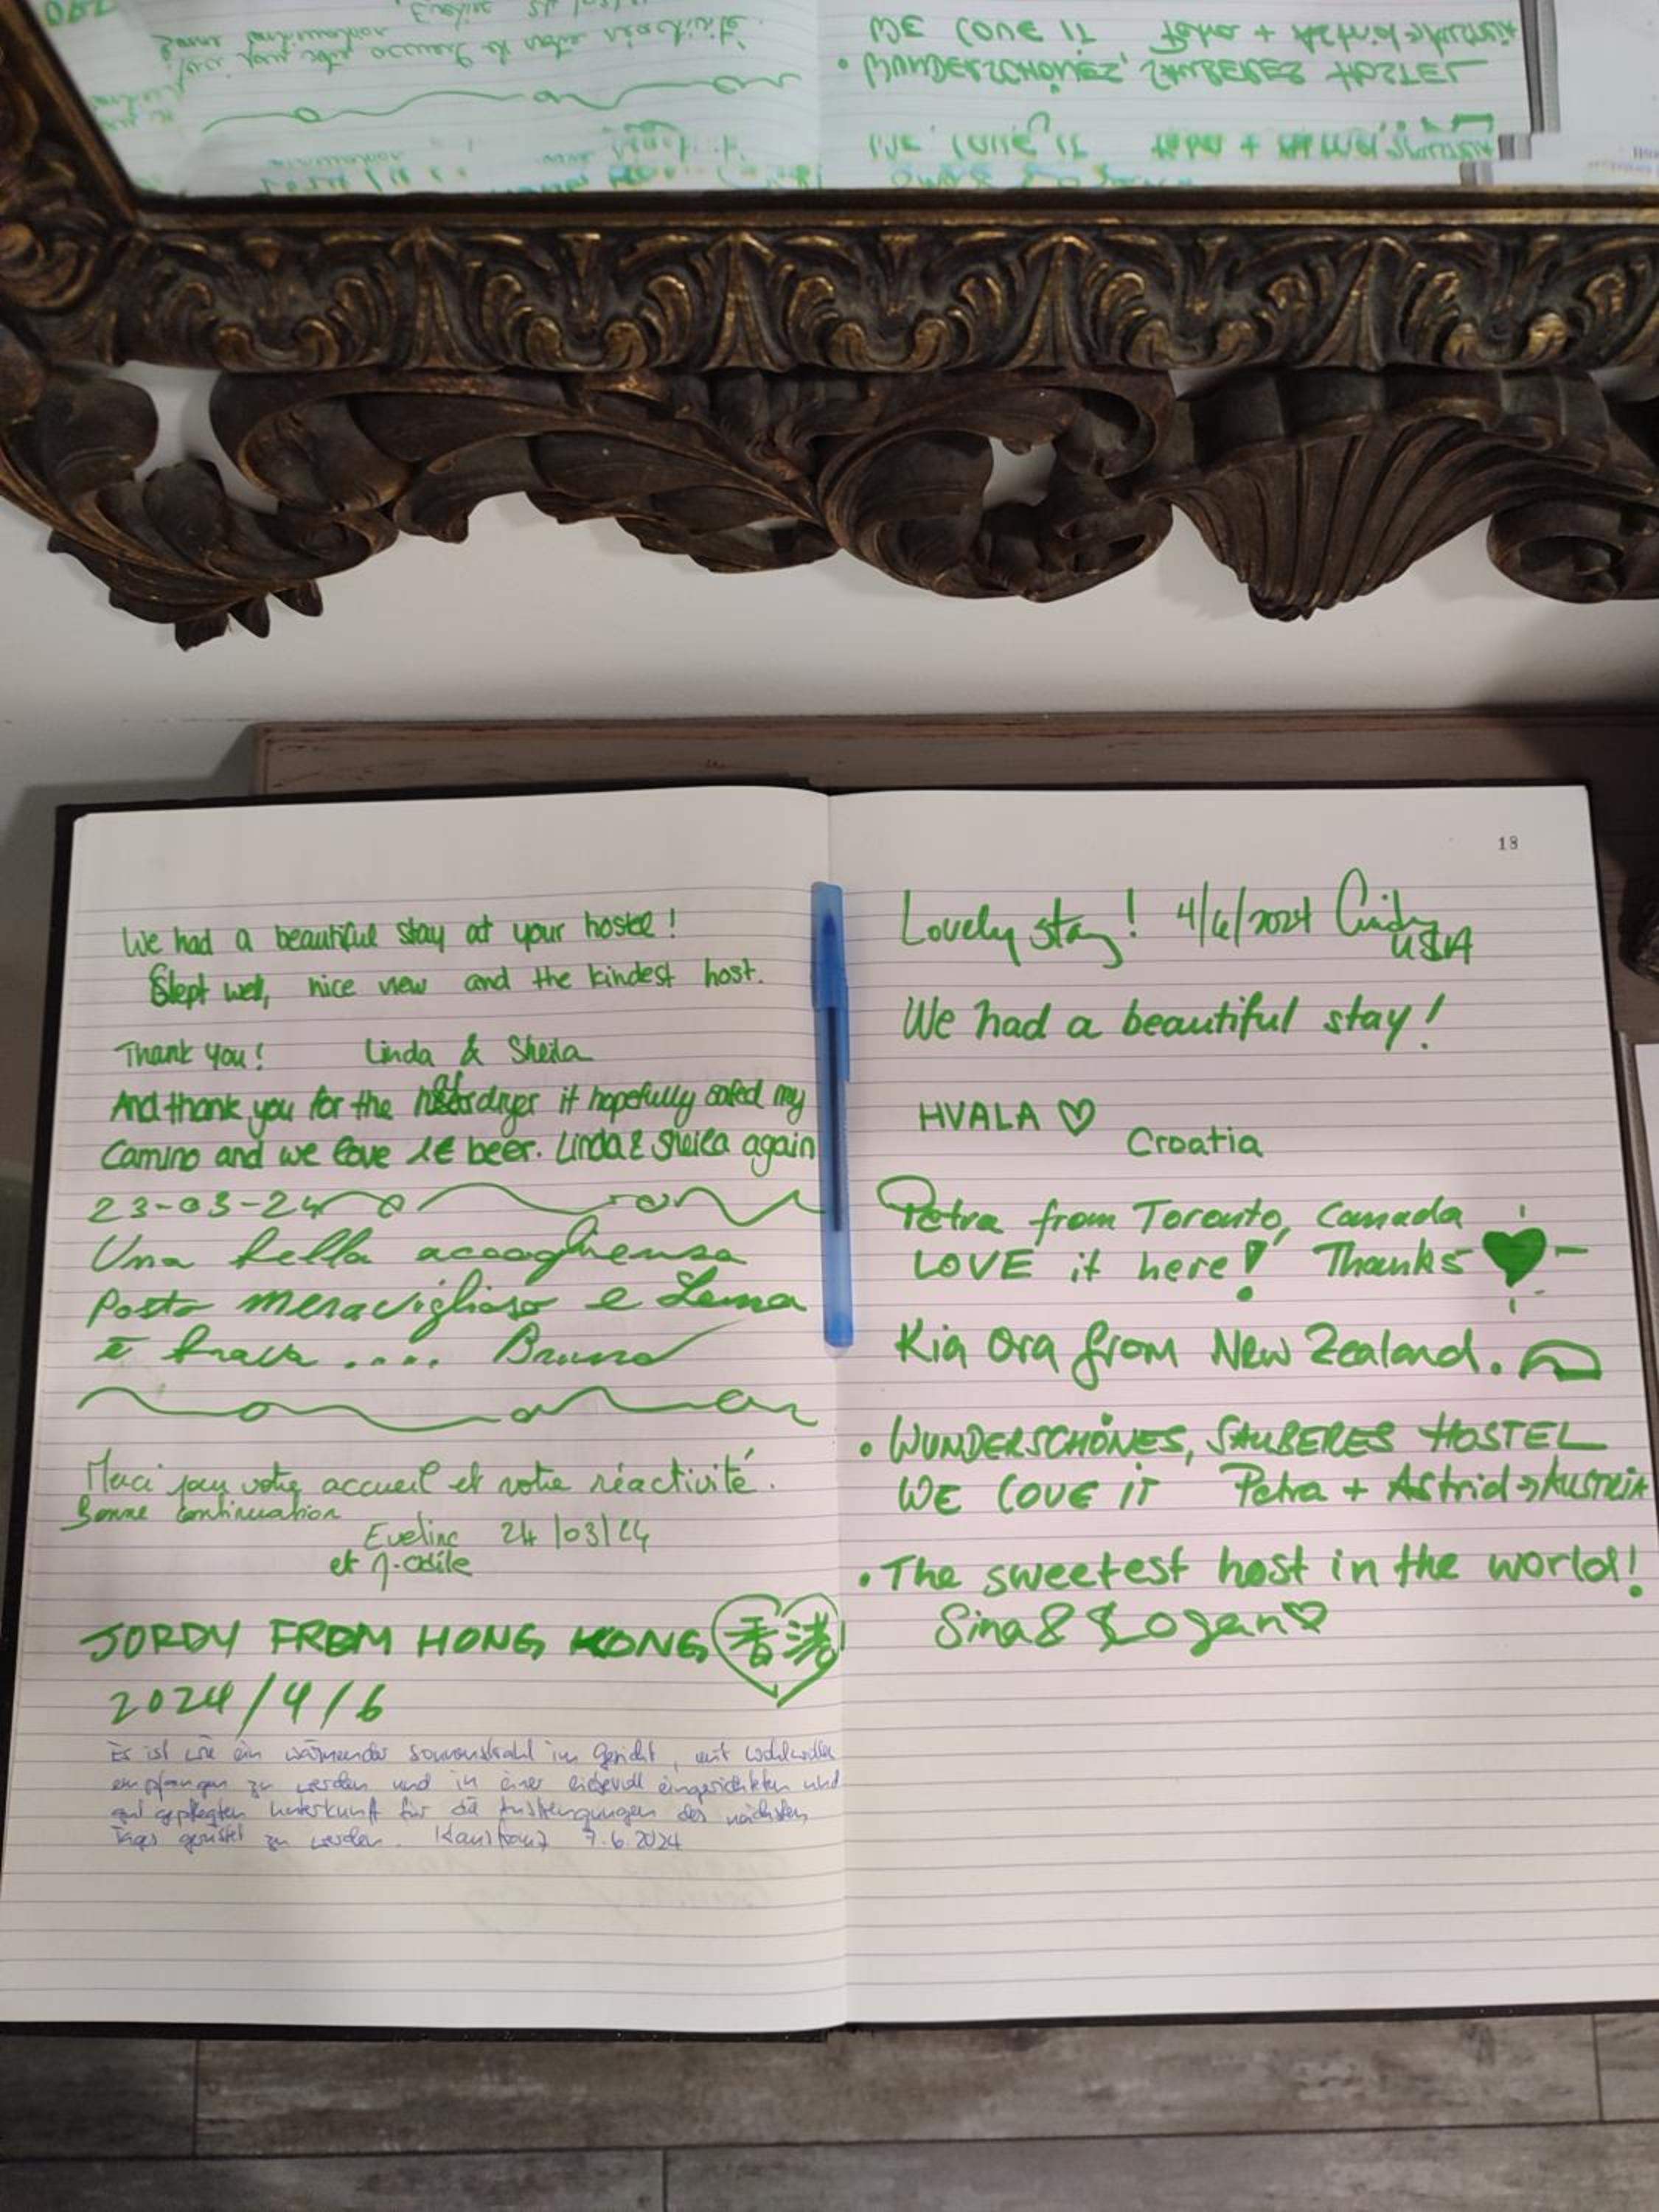 We had a beautiful stay at your hostel!
Slept well, nice view and the kindest host.
Thank you! Linda & Sheila
And thank you for the hairdryer it hopefully safed my
Camino and we love 1€ beer. Linda & Sheila again
23-03-24
Una bella accoglienza
Posto meraviglioso e
è brava .... Bruno
Merci pour votre accueil et votre réactivité.
Bonne continuation
Eveline 24/03/24
et J-Odile
JORDY FROM HONG KONG 香港
2024/4/6
Es ist wie ein wärmender Sonnenstrahl im Gesicht, mit Wohlwollen
empfangen zu werden und in einer liebevoll eingerichteten und
gut gepflegten Unterkunft für die Anstrengungen des nächsten
Tages gerüstet zu werden. 7.6.2024
18
Lovely stay! 4/6/2024 Cindy
USA
We had a beautiful stay!
HVALA ♡
Croatia
Petra from Toronto, Canada
LOVE it here! Thanks ♥
Kia Ora from New Zealand.
• WUNDERSCHÖNES, SAUBERES HOSTEL
WE LOVE IT Petra + Astrid → AUSTRIA
• The sweetest host in the world!
Sina & Logan ♡